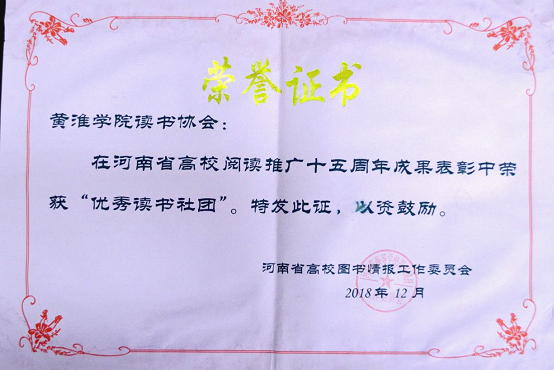 荣誉证书
黄淮学院读书协会：
在河南省高校阅读推广十五周年成果表彰中荣
获“优秀读书社团”。特发此证，以资鼓励。
河南省高校图书情报工作委员会
2018年12月